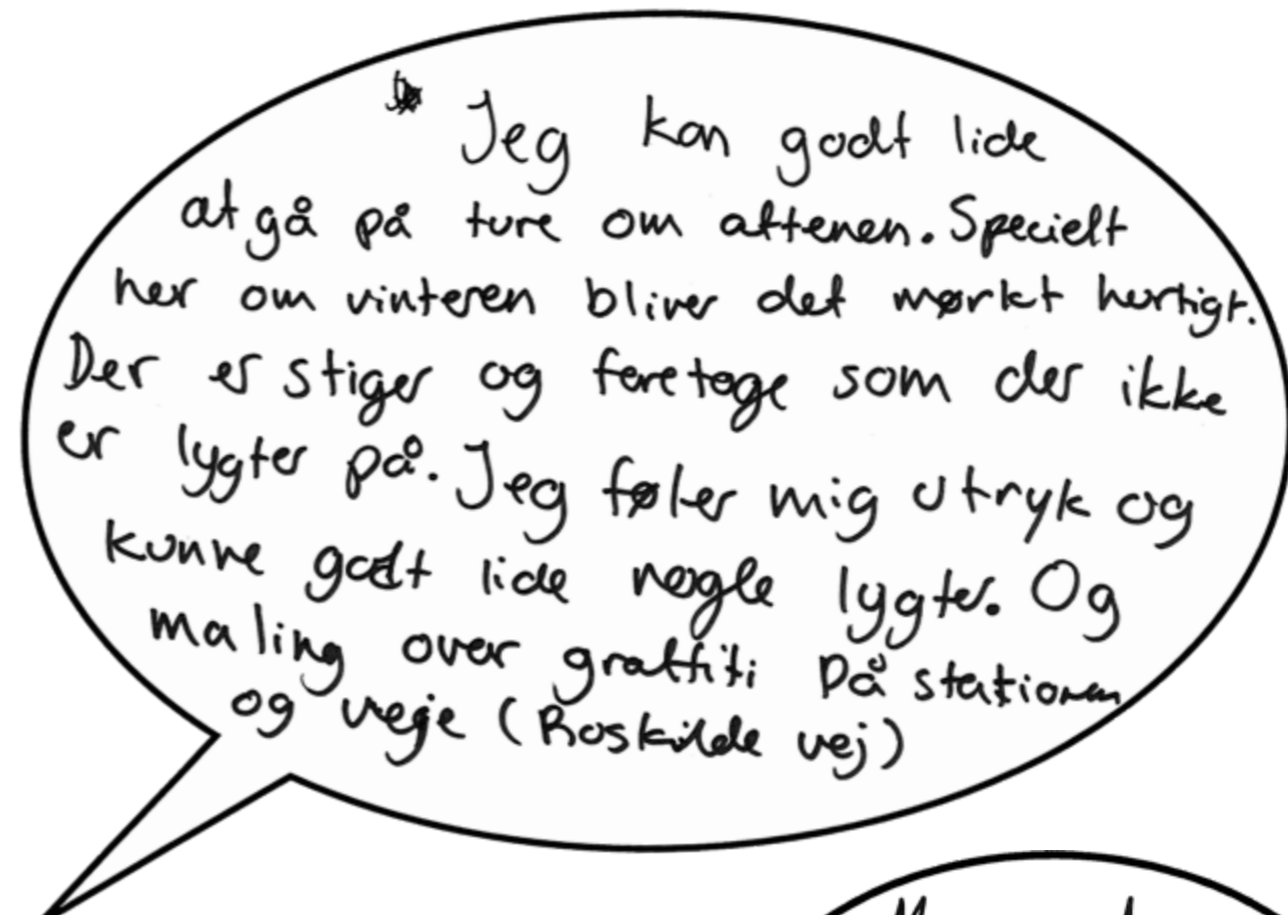 Jeg kan godt lide
at gå på ture om aftenen. Specielt
her om vinteren bliver det mørkt hurtigt.
Der er stiger og feretoge som der ikke
er lygter på. Jeg føler mig utryk og
kunne godt lide nogle lygter. Og
maling over graffiti på stationen
og veje (Roskilde vej)